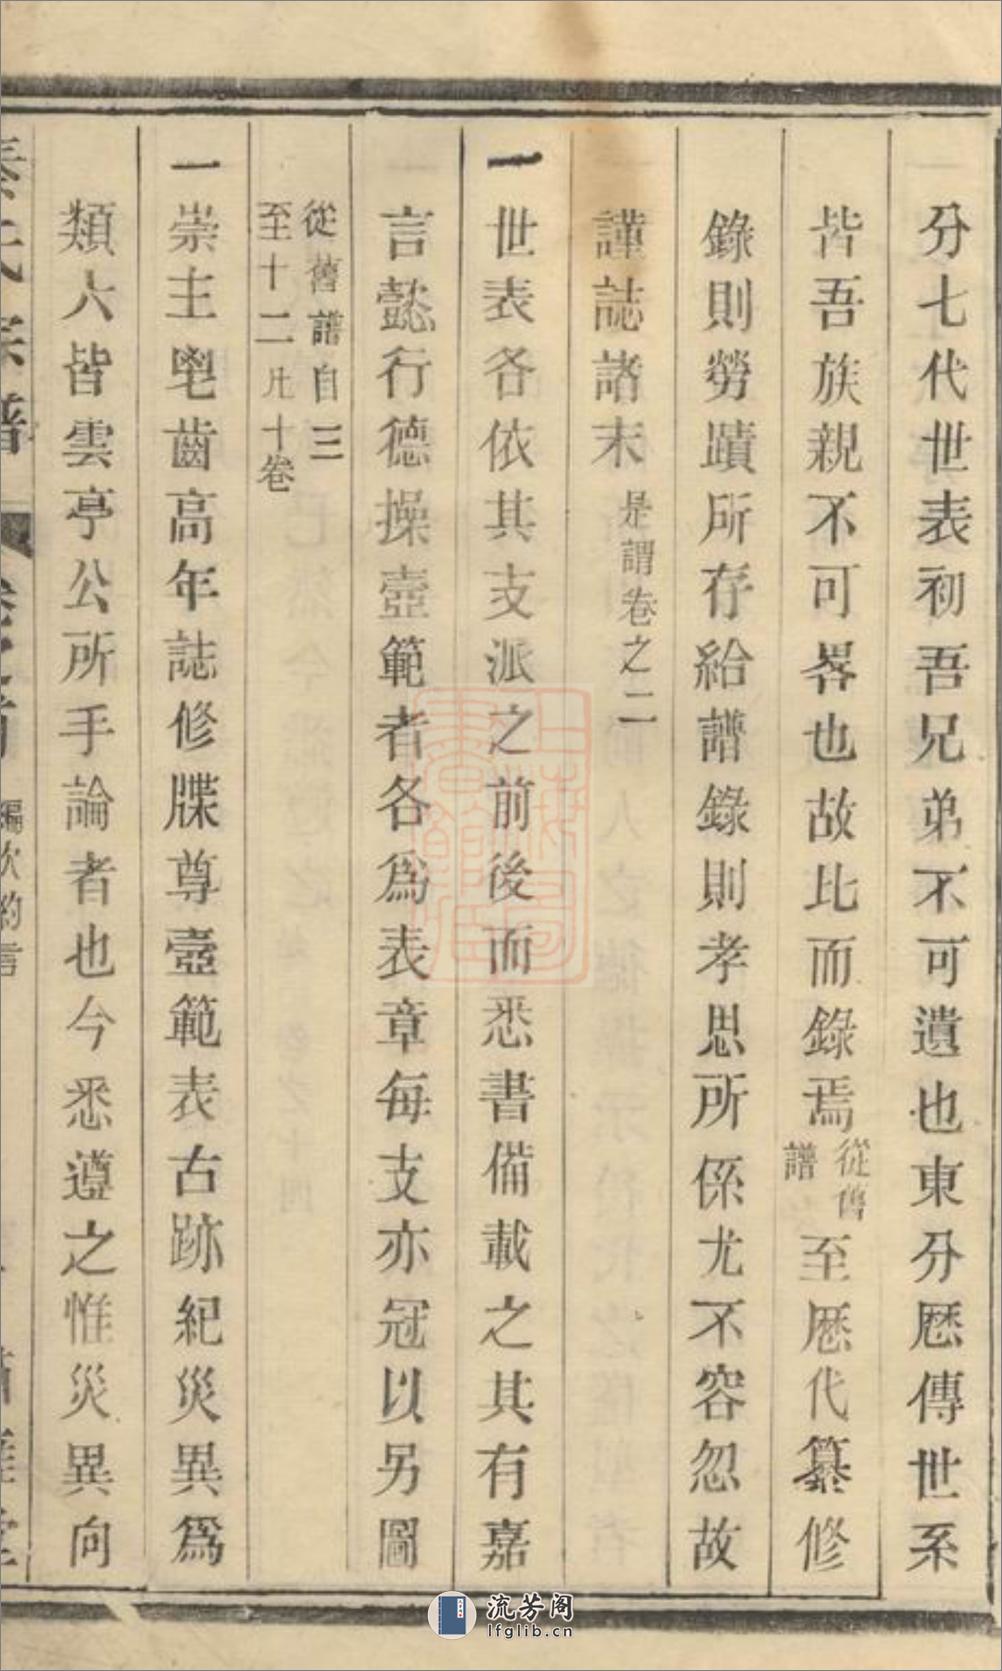 分七代世表初吾兄弟不可遺也東分歷傳世系
皆吾族親不可畧也故比而錄焉從舊譜至歷代纂修
錄則勞蹟所存給譜錄則孝思所係尤不容忽故
謹誌諸末是謂卷之二
一世表各依其支派之前後而悉書備載之其有嘉
言懿行德操壼範者各爲表章每支亦冠以另圖
從舊譜自三
至十二凡十卷
一崇主鬯齒高年誌修牒尊壼範表古跡紀災異爲
類六皆雲亭公所手論者也今悉遵之惟災異向
編次約言
流芳阁
lfglib.cn